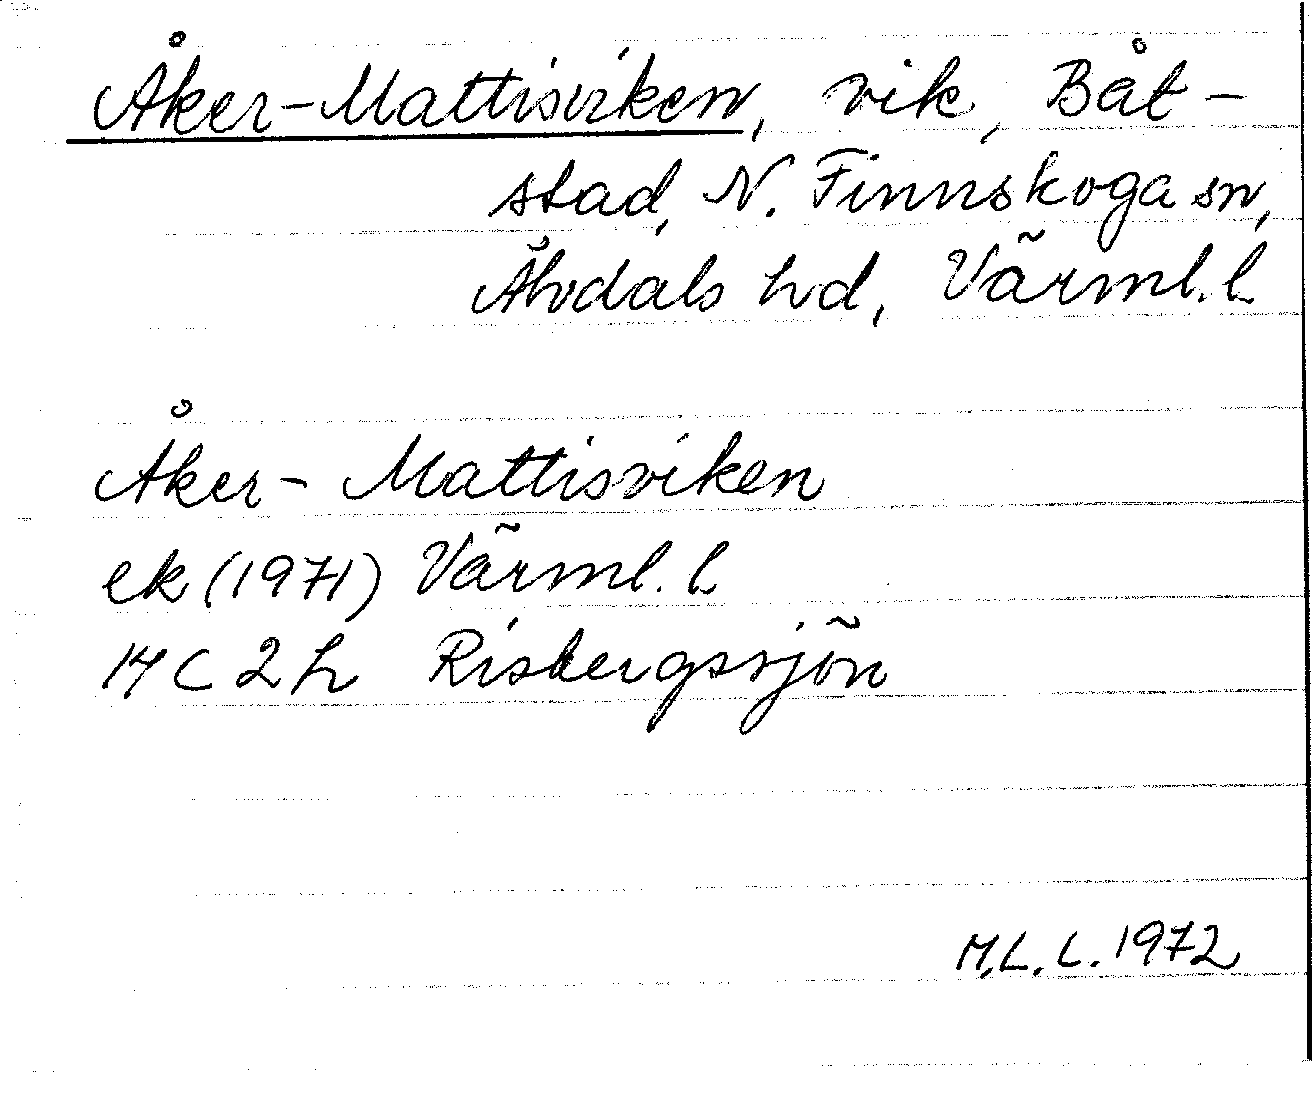 Åker-Mattisviken, vik, Båt-
stad, N. Finnskoga sn,
Älvdals hd, Värml. l.
Åker-Mattisviken
ek (1971) Värml. l.
14 C 2 h Risbergssjön
M.L.L. 1972